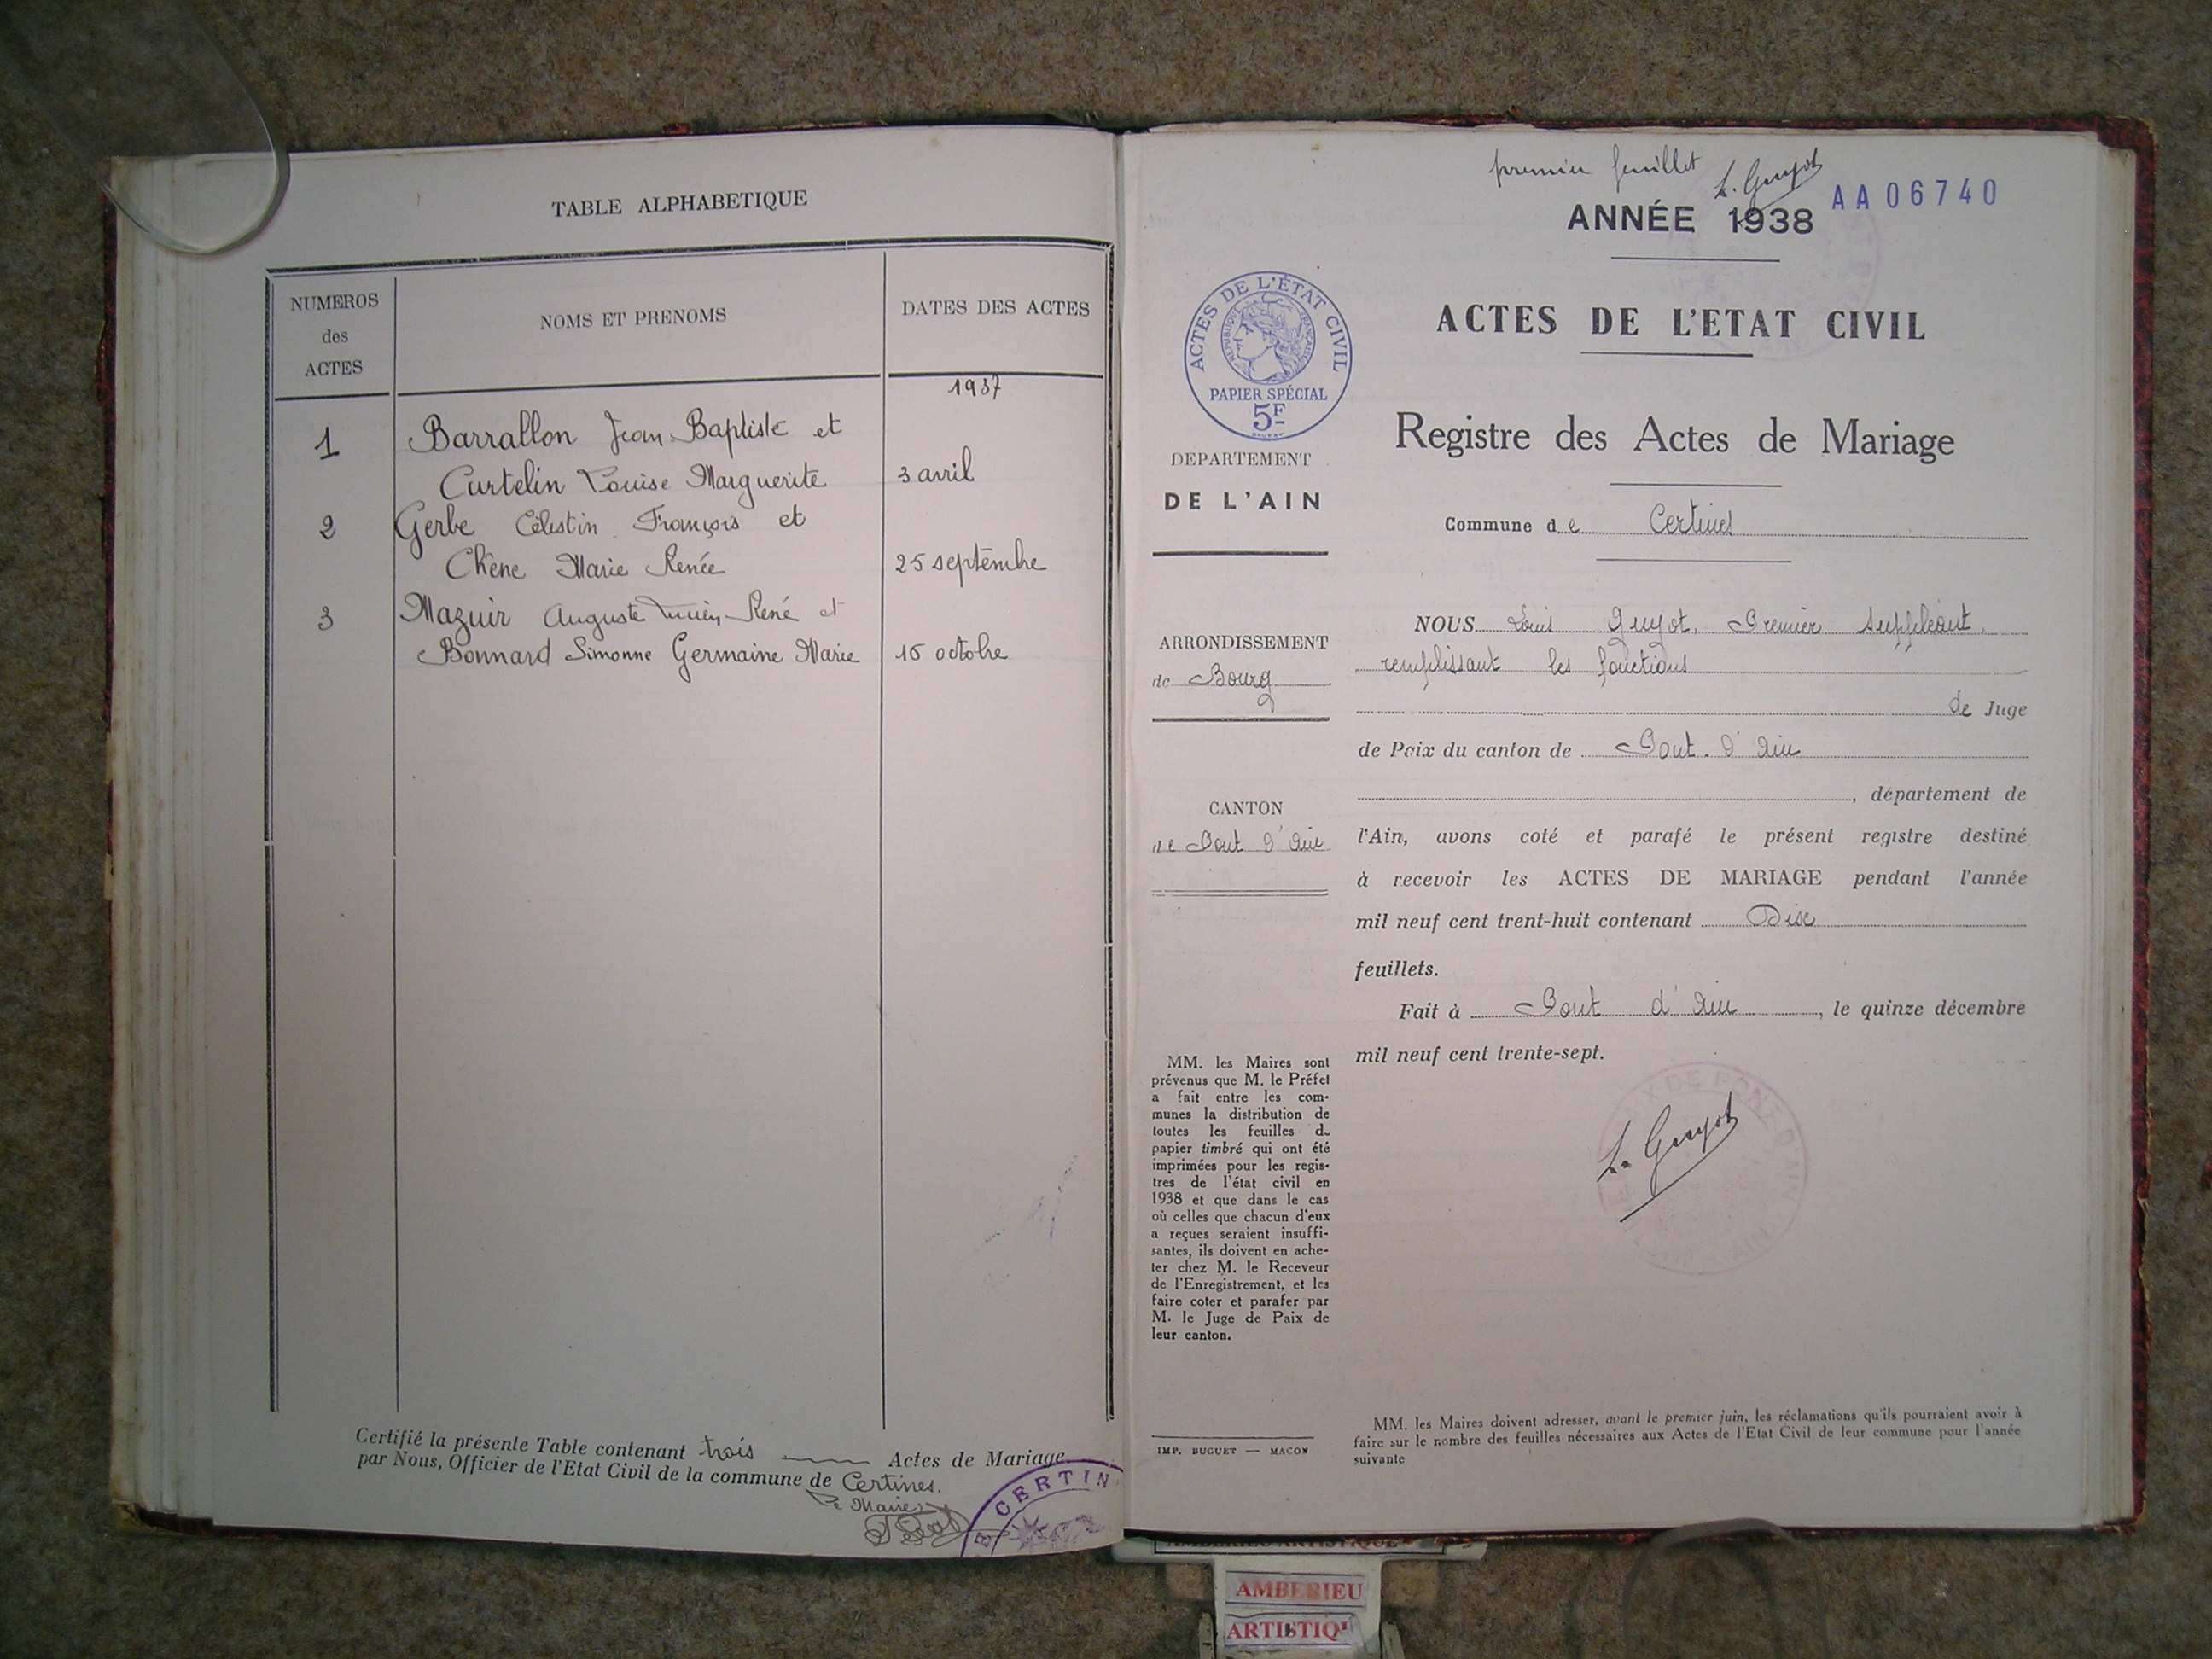 TABLE ALPHABETIQUE
NUMEROS
des
ACTES
NOMS ET PRENOMS
DATES DES ACTES
1937
1 Barrallon Jean-Baptiste et
Curtelin Louise Marguerite 3 avril
2 Gerbe Célestin François et
Chêne Marie Renée 25 septembre
3 Mazuir Auguste Lucien René et
Bonnard Simonne Germaine Marie 16 octobre
Certifié la présente Table contenant trois Actes de Mariage
par Nous, Officier de l'Etat Civil de la commune de Certines.
Le Maire,
E CERTIN
premier feuillet L. Guyot
AA06740
ANNÉE 1938
ACTES DE L'ETAT CIVIL
Registre des Actes de Mariage
Commune de Certines
ACTES DE L'ÉTAT CIVIL
RÉPUBLIQUE FRANÇAISE
PAPIER SPÉCIAL
5F
DEPARTEMENT
DE L'AIN
ARRONDISSEMENT
de Bourg
CANTON
de Pont d'Ain
MM. les Maires sont
prévenus que M. le Préfet
a fait entre les com-
munes la distribution de
toutes les feuilles d
papier timbré qui ont été
imprimées pour les regis-
tres de l'état civil en
1938 et que dans le cas
où celles que chacun d'eux
a reçues seraient insuffi-
santes, ils doivent en ache-
ter chez M. le Receveur
de l'Enregistrement, et les
faire coter et parafer par
M. le Juge de Paix de
leur canton.
IMP. BUGUET — MACON
NOUS Louis Guyot, Premier suppléant,
remplissant les fonctions
de Juge
de Paix du canton de Pont-d'Ain
, département de
l'Ain, avons coté et parafé le présent registre destiné
à recevoir les ACTES DE MARIAGE pendant l'année
mil neuf cent trent-huit contenant Dix
feuillets.
Fait à Pont d'Ain, le quinze décembre
mil neuf cent trente-sept.
L. Guyot
MM. les Maires doivent adresser, avant le premier juin, les réclamations qu'ils pourraient avoir à
faire sur le nombre des feuilles nécessaires aux Actes de l'Etat Civil de leur commune pour l'année
suivante
AMBERIEU ARTISTIQUE
AMBERIEU
ARTISTIQ